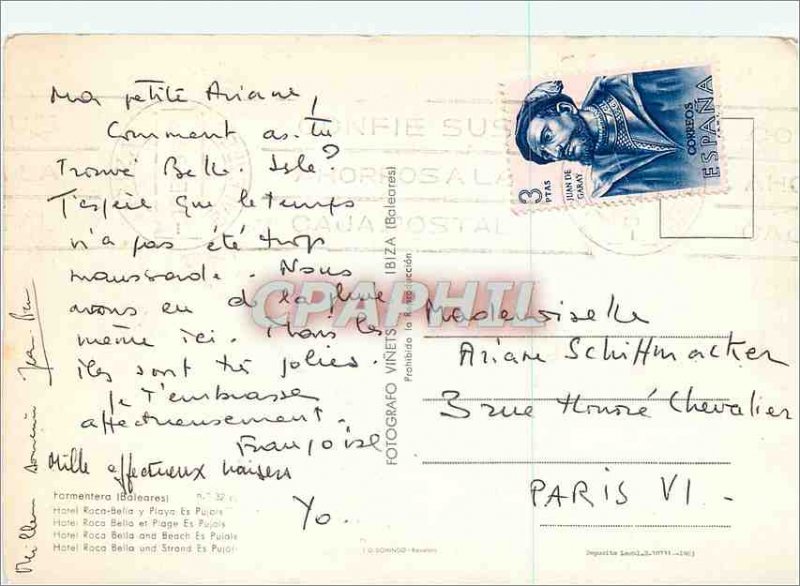 Ma petite Ariane,
Comment as-tu
Trouvé Belle-Isle ?
J'espère que le temps
n'a pas été trop
maussade. Nous
avons eu de la pluie
même ici. Mais les
îles sont très jolies.
Je t'embrasse
affectueusement.
Françoise
Mille affectueux baisers
Yo.
Meilleur souvenir Jean
Formentera (Baleares) n.° 32
Hotel Roca-Bella y Playa Es Pujols
Hotel Roca Bella et Plage Es Pujols
Hotel Roca Bella and Beach Es Pujols
Hotel Roca Bella und Strand Es Pujols
FOTOGRAFO VIÑETS IBIZA (Baleares)
Prohibida la Reproducción
CONFIE SUS
AHORROS A LA
CAJA POSTAL
3 PTAS
JUAN DE GARAY
CORREOS
ESPAÑA
CPAPHIL
Mademoiselle
Ariane Schiffmacker
3 rue Honoré Chevalier
PARIS VI -
Deposito Legal.B.